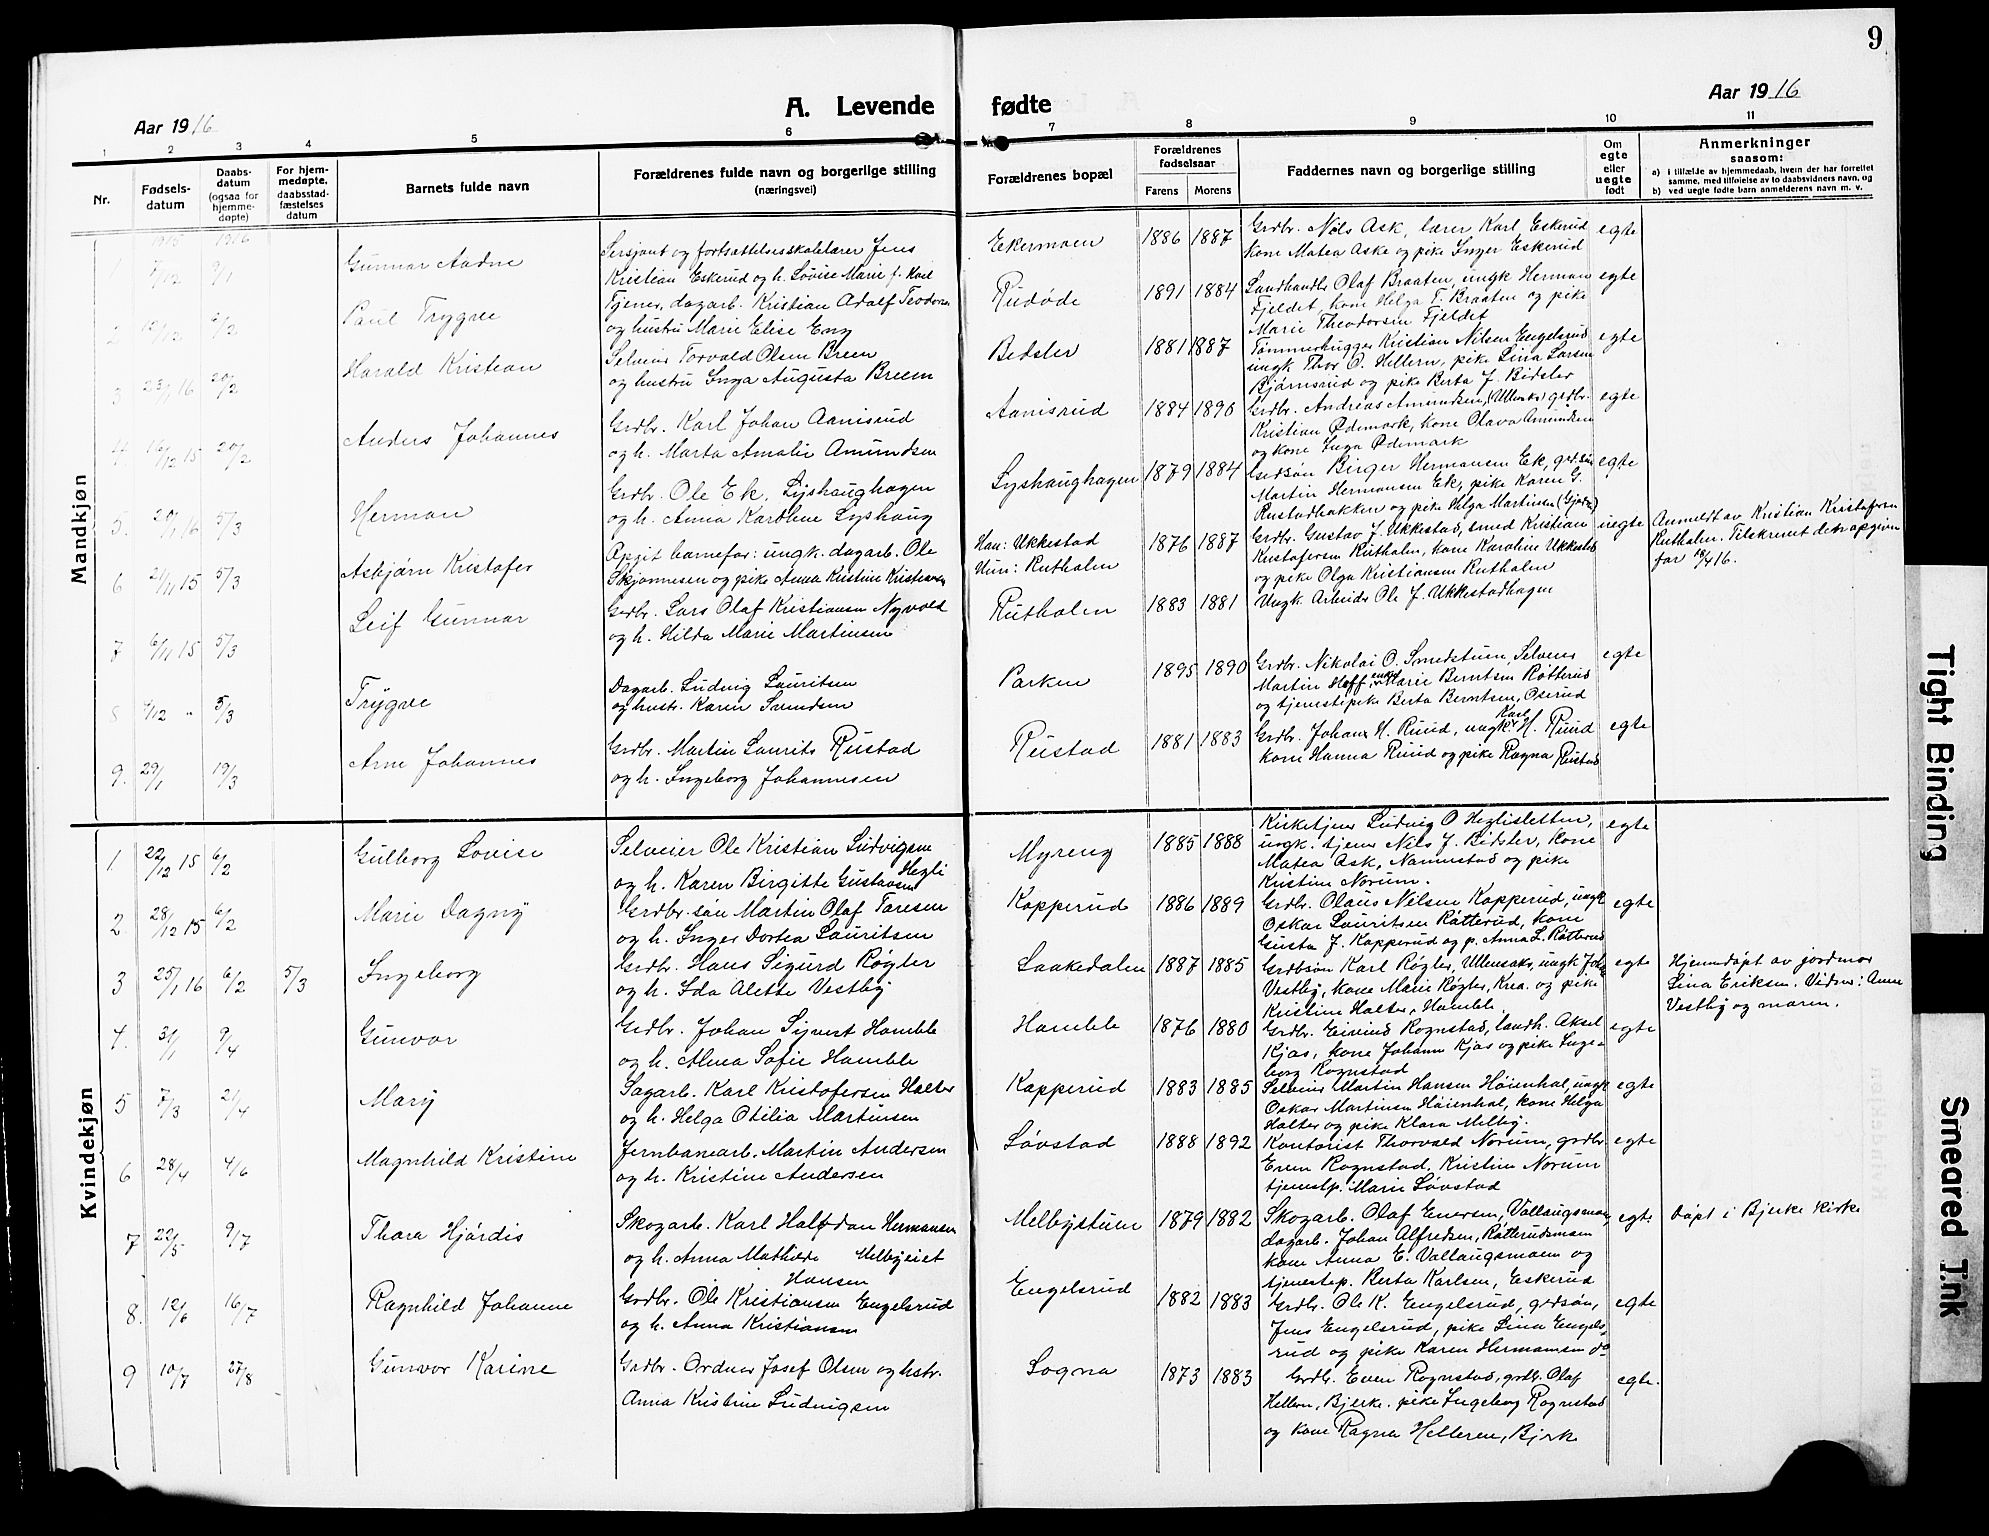 9
Aar 1916
A. Levende fødte
Aar 1916
1 2 3 4 5 6 7 8 9 10 11
Nr.
Fødsels-
datum
Daabs-
datum
(ogsaa for
hjemme-
døpte)
For hjem-
medøpte,
daabsstad-
fæstelses
datum
Barnets fulde navn
Forældrenes fulde navn og borgerlige stilling
(næringsvei)
Forældrenes bopæl
Forældrenes
fødselsaar
Farens Morens
Faddernes navn og borgerlige stilling
Om
egte
eller
uegte
født
Anmerkninger
saasom:
a) i tilfælde av hjemmedaab, hvem der har forrettet
samme, med tilføielse av to daabsvidners navn, og
b) ved uegte fødte barn anmelderens navn m. v.
Mandkjøn
1915 1916
7/12 9/1
Gunnar Aadne
Sersjant og fortsættelsesskolelærer Jens
Kristian Eskerud og h. Lovise Marie f. Karl
Ekermoen
1886 1887
Grdbr. Nils Ask, lærer Karl Eskerud
kone Matea Aske og pike Inger Eskerud
egte
2 12/12 6/2
Paul Trygve
Tjener, dagarb. Kristian Adolf Teodorsen
og hustru Marie Elise Eng
Rudøde
1891 1884
Landhandler Olaf Braaten, ungk Herman
Fjeldet, kone Helga T. Braaten og pike
Marie Theodorsen Fjeldet
egte
3 23/1 16 20/2
Harald Kristian
Selveier Torvald Olsen Breen
og hustru Inga Augusta Breem
Bidsler
1881 1887
Tømmerhugger Kristian Nilsen Engelsrud
ungk Thor O. Hellern, pike Lina Larsen
Bjørnsrud og pike Berta J. Bidsler
egte
4 16/12 15 20/2
Anders Johannes
Grdbr. Karl Johan Aanisrud
og h. Marta Amalie Amundsen
Aanisrud
1884 1890
Grdbr. Andreas Amundsen, (Ullensk) grdbr.
Kristian Ødemark, kone Olava Amundsen
og kone Inga Ødemark
egte
5. 20/1 16 5/3
Herman
Grdbr. Ole Ek, Lyshaughagen
og h. Anna Karoline Lyshaug
Lyshaughagen
1879 1884
Grdsøn Birger Hermansen Ek, grdsøn
Martin Hermansen Ek, pike Karen G.
Rustadbakken og pike Helga Martinsen (Gjødin)
egte
6 21/11 15 5/3
Asbjørn Kristofer
Opgit barnefar: ungk. dagarb. Ole
Skjønnesen og pike Anna Kristine Kristiansen
Han: Ukkestad
Hun: Rutholen
1876 1887
Grdbr. Gustav J. Ukkestad, smed Kristian
Kristofersen Rutholen, kone Karoline Ukkestad
og pike Olga Kristiansen Rutholen
uegte
Anmeldt av Kristian Kristofersen
Rutholen. Tilskrevet den opgivne
far 18/4 16.
7 6/11 15 5/3
Leif Gunnar
Grdbr. Lars Olaf Kristiansen Nyvold
og h. Hilda Marie Martinsen
Rutholen
1883 1881
Ungk. Arbeider Ole J. Ukkestadhagen
8 4/12 " 5/3
Trygve
Dagarb. Ludvig Lauritsen
og hustr. Karen Svendsen
Parken
1895 1890
Grdbr. Nikolai O. Smedstuen, Selveier
Martin Hoff, enke Marie Berntsen Røtterud
og tjenestepike Berta Berntsen, Oserud
egte
9. 29/1 19/3
Arne Johannes
Grdbr. Martin Laurits Rustad
og h. Ingeborg Johannesen
Rustad
1881 1883
Grdbr. Johans H. Ruud, ungk. Karl H. Ruud
kone Hanna Ruud og pike Ragna Rustad
egte
Kvindekjøn
1. 22/12 15 6/2
Gulborg Lovise
Selveier Ole Kristian Ludvigsen
og h. Karen Birgitte Gustavsen Hegli
Myreng
1885 1888
Kirketjener Ludvig O Heglisletten,
ungk. tjener Nils J. Bidsler, kone
Matea Ask, Nannestad og pike
Kristine Norum.
egte
2 28/12 15 6/2
Marie Dagny
Grdbr. søn Martin Olaf Taresen
og h. Inger Dortea Lauritsen
Kopperud
1886 1889
Grdbr. Olaus Nilsen Kopperud, ungk
Oskar Lauritsen Røtterud, kone
Gusta J. Kopperud og p. Anna L. Røtterud
egte
3 25/1 16 6/2 5/3
Ingeborg
Grdbr. Hans Sigurd Røgler
og h. Ida Alette Vestby
Laakedalen
1887 1885
Grdbsøn Karl Røgler, Ullensaker, ungk Johs
Vestby, kone Marie Røgler, Krea. og pike
Kristine Holter, Hamble.
egte
Hjemmdøpt av jordmor
Lina Eriksen. Vidner: Anne
Vestby og moren.
4. 31/1 9/4
Gunvor
Grdbr. Johan Sijvert Hamble
og h. Alma Sofie Hamble
Hamble
1876 1880
Grdbr. Eivind Rognstad, landh. Aksel
Kjos, kone Johann Kjos og pike Inge-
borg Rognstad
egte
5 7/3 21/4
Mary
Sagarb. Karl Kristofersen Holter
og h. Helga Otilia Martinsen
Kopperud
1883 1885
Selveier Martin Hansen Høienhal, ungk
Oskar Martinsen Høienhal, kone Helga
Holter og pike Klara Melby.
egte
6 28/4 4/6
Magnhild Kristine
Jernbanearb. Martin Andersen
og h. Kristine Andersen
Løvstad
1888 1892
Kontorist Thorvald Norum, grdbr
Even Rognstad, Kristine Norum
tjenstp. Marie Løvstad
egte
7 22/5 9/7
Thora Hjørdis
Skogarb. Karl Halvdan Hermansen
og h. Anna Mathilde Melbyeiet
Hansen
Melbystuen
1879 1882
Skogarb. Olaf Enersen, Vollaugsmoen,
dagarb. Johan Alfredsen, Røtterudsmoen
kone Anna E. Vollaugsmoen og
tjenestep. Berta Karlsen, Eskerud
egte
Døpt i Bjerke kirke
8. 12/6 16/7
Ragnhild Johanne
Grdbr. Ole Kristiansen Engelsrud
og h. Anna Kristiansen
Engelsrud
1882 1883
Grdbr. Ole K. Engelsrud, grdsøn,
Jens Engelsrud, pike Lina Engels-
rud og pike Karen Hermansen do
egte
9 10/7 27/8
Gunvor Karine
Grdbr. Ordner Josef Olsen og hstr.
Anna Kristine Ludvigsen
Sogna
1873 1883
Grdbr. Even Rognstad, grdbr. Olaf
Hellern, Bjerke. pike Ingeborg Rognstad
og kone Ragna Helleren, Bjerk
egte.
Tight Binding
Smeared Ink